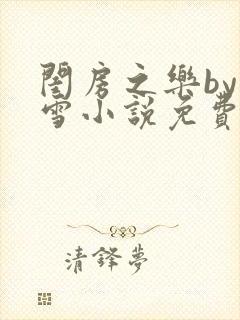 閨房之樂by
雪小說免費
清鋒夢